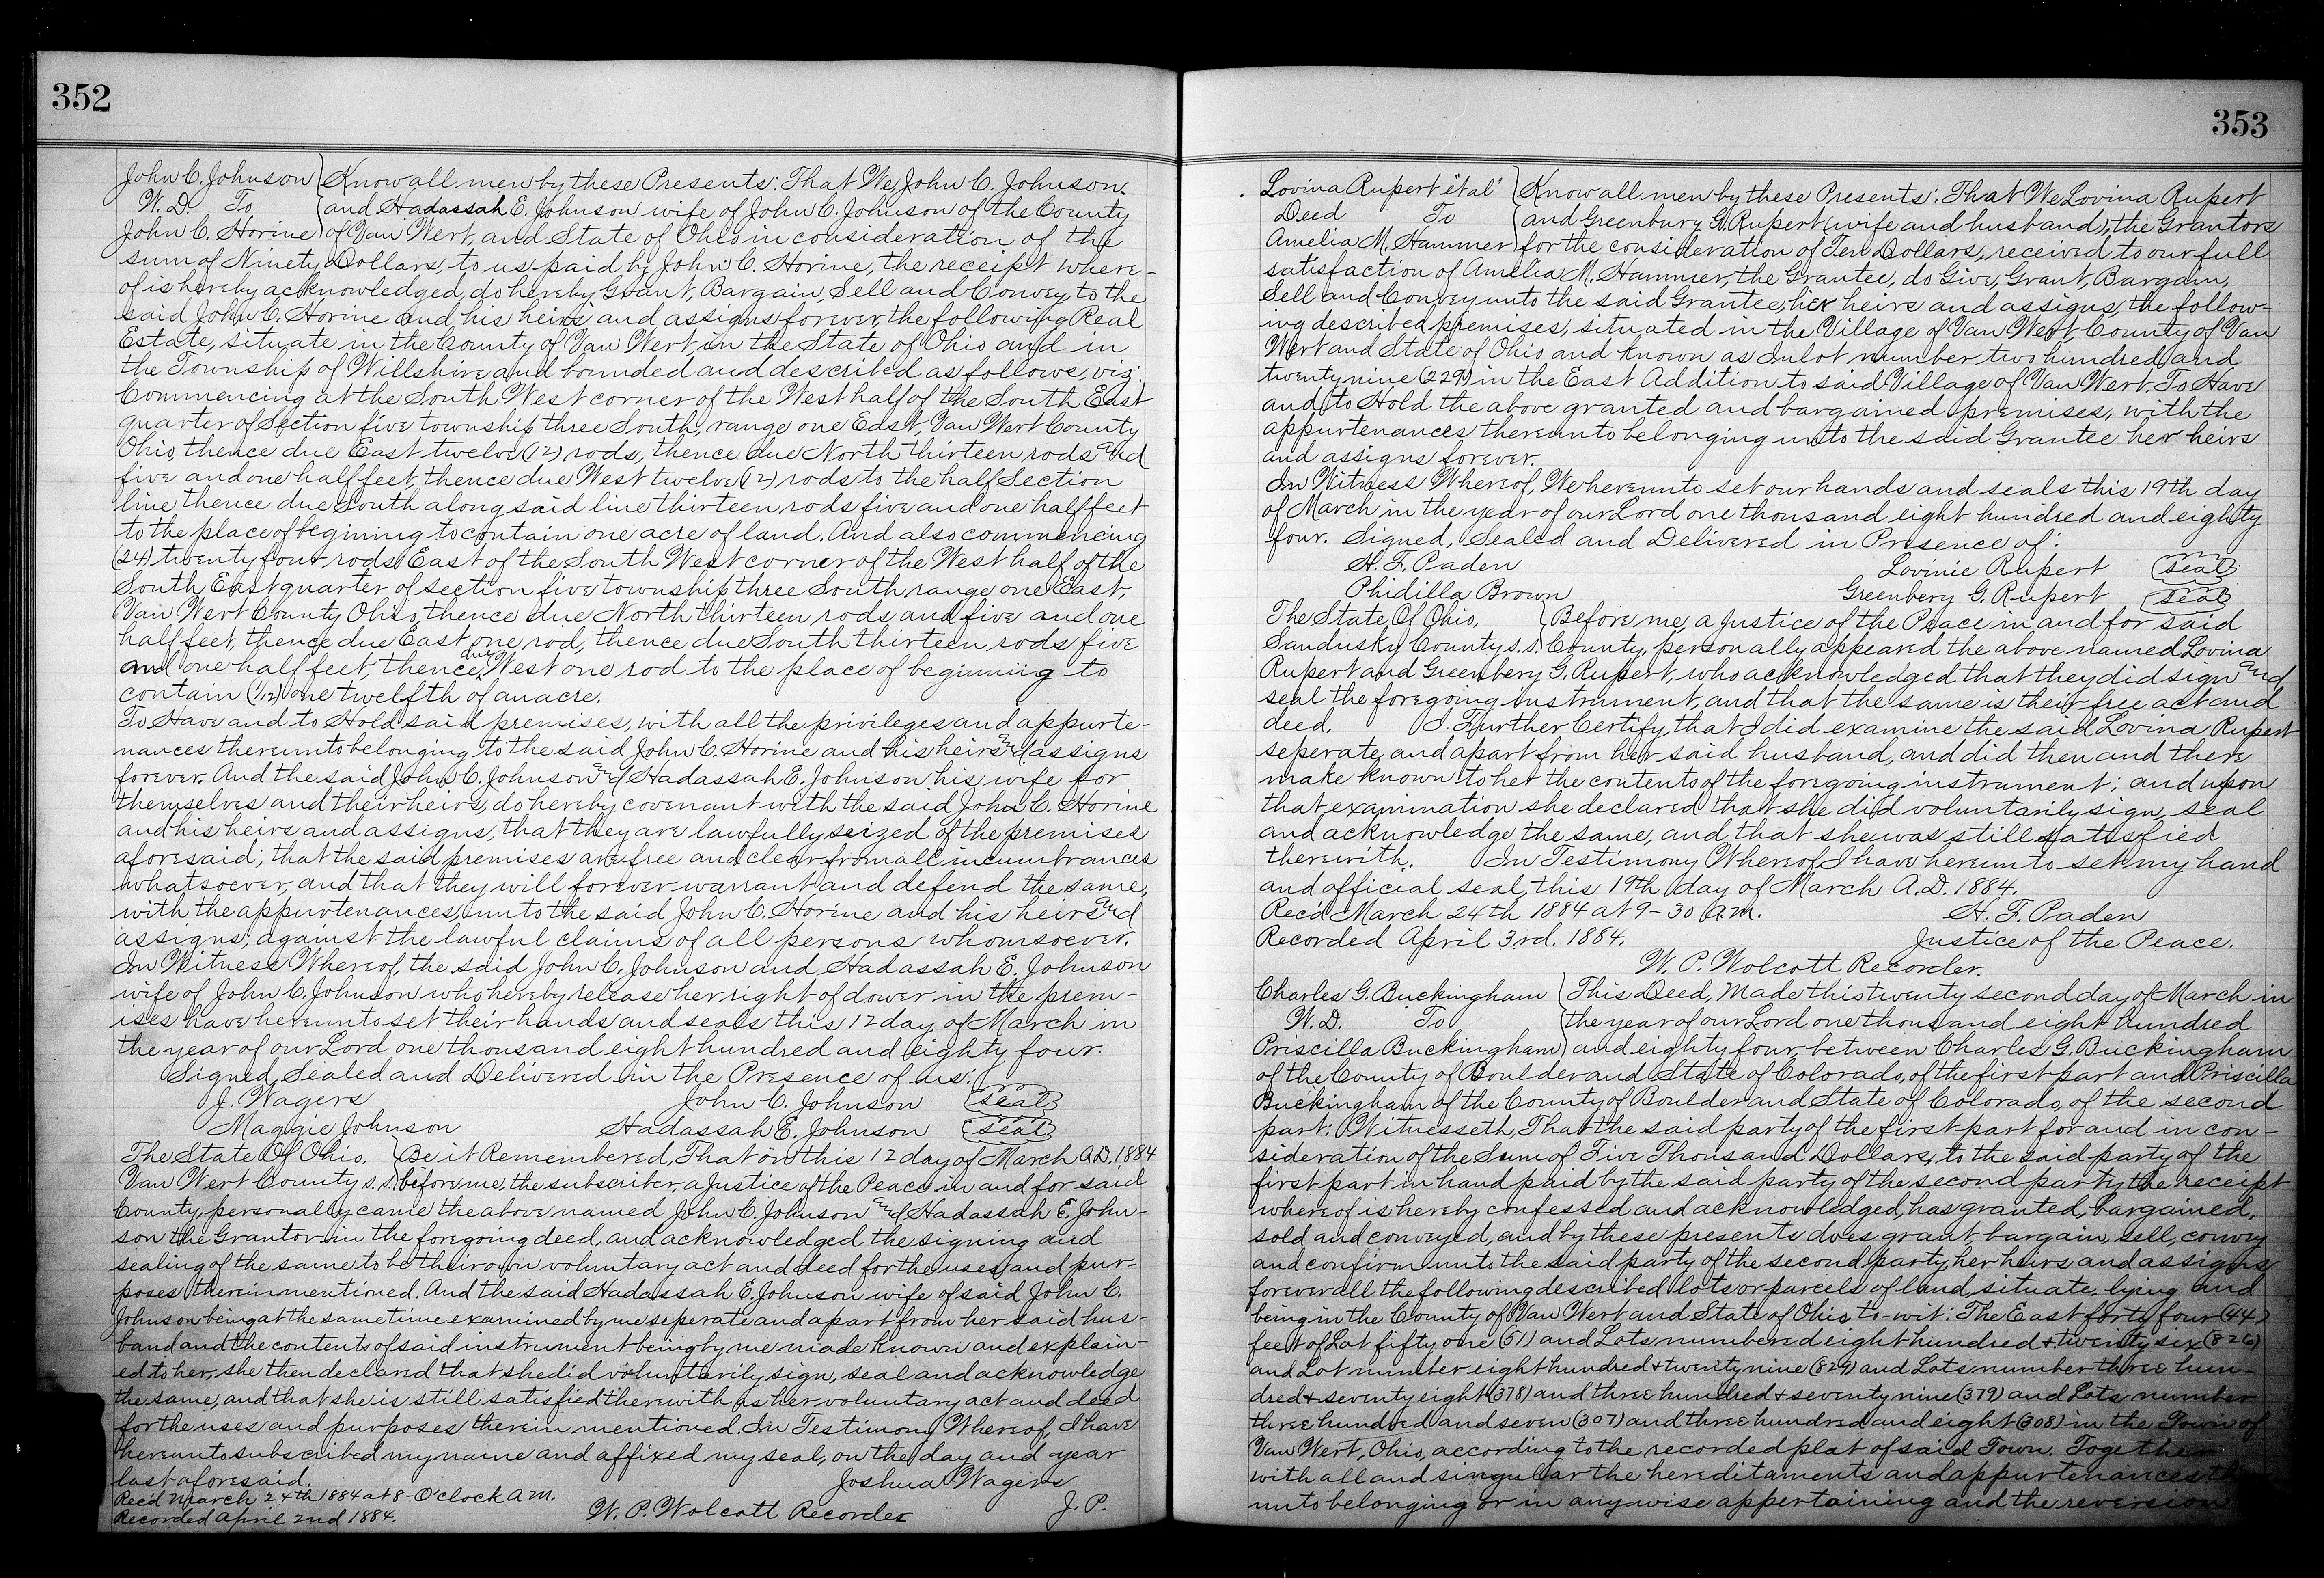 352
John C. Johnson Know all men by these Presents: That We, John C. Johnson.
W. D. To and Hadassah E. Johnson wife of John C. Johnson of the County
John C. Horine of Van Wert, and State of Ohio in consideration of the
sum of Ninety Dollars, to us paid by John C. Horine, the receipt where-
of is hereby acknowledged, do hereby Grant, Bargain, Sell and Convey to the
said John C. Horine and his heirs and assigns forever, the following Real
Estate, situate in the County of Van Wert, in the State of Ohio and in
the Township of Willshire and bounded and described as follows, viz:
Commencing at the South West corner of the West half of the South East
quarter of Section five township three South, range one East, Van Wert County
Ohio, thence due East twelve (12) rods, thence due North thirteen rods and
five and one half feet, thence due West twelve (12) rods to the half Section
line thence due South along said line thirteen rods five and one half feet
to the place of begining to contain one acre of land. And also commencing
(24) twenty four rods East of the South West corner of the West half of the
South East quarter of section five township three South range one East,
Van Wert County Ohio, thence due North thirteen rods and five and one
half feet, thence due East one rod, thence due South thirteen rods five
and one half feet, thence due West one rod to the place of beginning to
contain (1/12) one twelfth of an acre.
To Have and to Hold said premises, with all the privileges and appurte-
nances thereunto belonging, to the said John C. Horine and his heirs and assigns
forever. And the said John C. Johnson and Hadassah E. Johnson his wife for
themselves and their heirs, do hereby covenant with the said John C. Horine
and his heirs and assigns, that they are lawfully seized of the premises
aforesaid; that the said premises are free and clear from all incumbrances
whatsoever, and that they will forever warrant and defend the same,
with the appurtenances, unto the said John C. Horine and his heirs and
assigns, against the lawful claims of all persons whomsoever.
In Witness Whereof, the said John C. Johnson and Hadassah E. Johnson
wife of John C. Johnson who hereby release her right of dower in the prem-
ises have hereunto set their hands and seals this 12 day of March in
the year of our Lord one thousand eight hundred and eighty four.
Signed, Sealed and Delivered in the Presence of us:
J. Wagers John C. Johnson seal
Maggie Johnson Hadassah E. Johnson seal
The State Of Ohio, Be it Remembered, That on this 12 day of March A.D. 1884
Van Wert County s.s. before me, the subscriber, a Justice of the Peace in and for said
County, personally came the above named John C. Johnson and Hadassah E. John-
son the Grantor in the foregoing deed, and acknowledged the signing and
sealing of the same to be their own voluntary act and deed for the uses and pur-
poses therein mentioned. And the said Hadassah E. Johnson wife of said John C.
Johnson being at the same time examined by me seperate and apart from her said hus-
band and the contents of said instrument being by me made known and explain-
ed to her, she then declared that she did voluntarily sign, seal and acknowledge
the same, and that she is still satisfied therewith as her voluntary act and deed
for the uses and purposes therein mentioned. In Testimony Whereof, I have
hereunto subscribed my name and affixed my seal, on the day and year
last aforesaid. Joshua Wagers
Rec'd March 24th 1884 at 8-O'clock A.M. J. P.
Recorded April 2nd 1884. W. P. Wolcott Recorder
353
Lovina Rupert "et al" Know all men by these Presents: That We Lovina Rupert
Deed To and Greenbury G. Rupert (wife and husband), the Grantors
Amelia M. Hammer for the consideration of Ten Dollars, received to our full
satisfaction of Amelia M. Hammer, the Grantee, do Give, Grant, Bargain,
Sell and Convey unto the said Grantee, her heirs and assigns, the follow-
ing described premises, situated in the Village of Van Wert, County of Van
Wert and State of Ohio and known as Inlot number two hundred and
twenty nine (229) in the East Addition to said Village of Van Wert. To Have
and to Hold the above granted and bargained premises, with the
appurtenances thereunto belonging unto the said Grantee her heirs
and assigns forever.
In Witness Whereof, We hereunto set our hands and seals this 19th day
of March in the year of our Lord one thousand eight hundred and eighty
four. Signed, Sealed and Delivered in Presence of:
H. F. Paden Lovinie Rupert seal
Phidilla Brown Greenbery G. Rupert seal
The State Of Ohio, Before me, a Justice of the Peace in and for said
Sandusky County s.s. County, personally appeared the above named Lovina
Rupert and Greenbery G. Rupert, who acknowledged that they did sign and
seal the foregoing instrument, and that the same is their free act and
deed. I Further Certify, that I did examine the said Lovina Rupert
seperate and apart from her said husband, and did then and there
make known to her the contents of the foregoing instrument; and upon
that examination she declared that she did voluntarily sign, seal
and acknowledge the same, and that she was still satisfied
therewith. In Testimony Whereof I have hereunto set my hand
and official seal, this 19th day of March A.D. 1884.
Rec'd March 24th 1884 at 9-30 A.M. H. F. Paden
Recorded April 3rd. 1884. Justice of the Peace.
W. P. Wolcott Recorder.
Charles G. Buckingham This Deed, Made this twenty second day of March in
W. D. To the year of our Lord one thousand eight hundred
Priscilla Buckingham and eighty four, between Charles G. Buckingham
of the County of Boulder and State of Colorado, of the first part and Priscilla
Buckingham of the County of Boulder and State of Colorado, of the second
part; Witnesseth, That the said party of the first part for and in con-
sideration of the Sum of Five Thousand Dollars, to the said party of the
first part in hand paid by the said party of the second party, the receipt
whereof is hereby confessed and acknowledged, has granted, bargained,
sold and conveyed, and by these presents does grant, bargain, sell, convey
and confirm unto the said party of the second party, her heirs and assigns
forever all the following described lots or parcels of land, situate, lying and
being in the County of Van Wert and State of Ohio, to-wit: The East forty four (44)
feet of Lot fifty one (51) and Lots numbered eight hundred & twenty six (826)
and Lot number eight hundred & twenty nine (829) and Lots number three hun-
dred & seventy eight (378) and three hundred & seventy nine (379) and Lots number
three hundred and seven (307) and three hundred and eight (308) in the Town of
Van Wert, Ohio, according to the recorded plat of said Town. Together
with all and singular the hereditaments and appurtenances
unto belonging or in any wise appertaining and the reversion